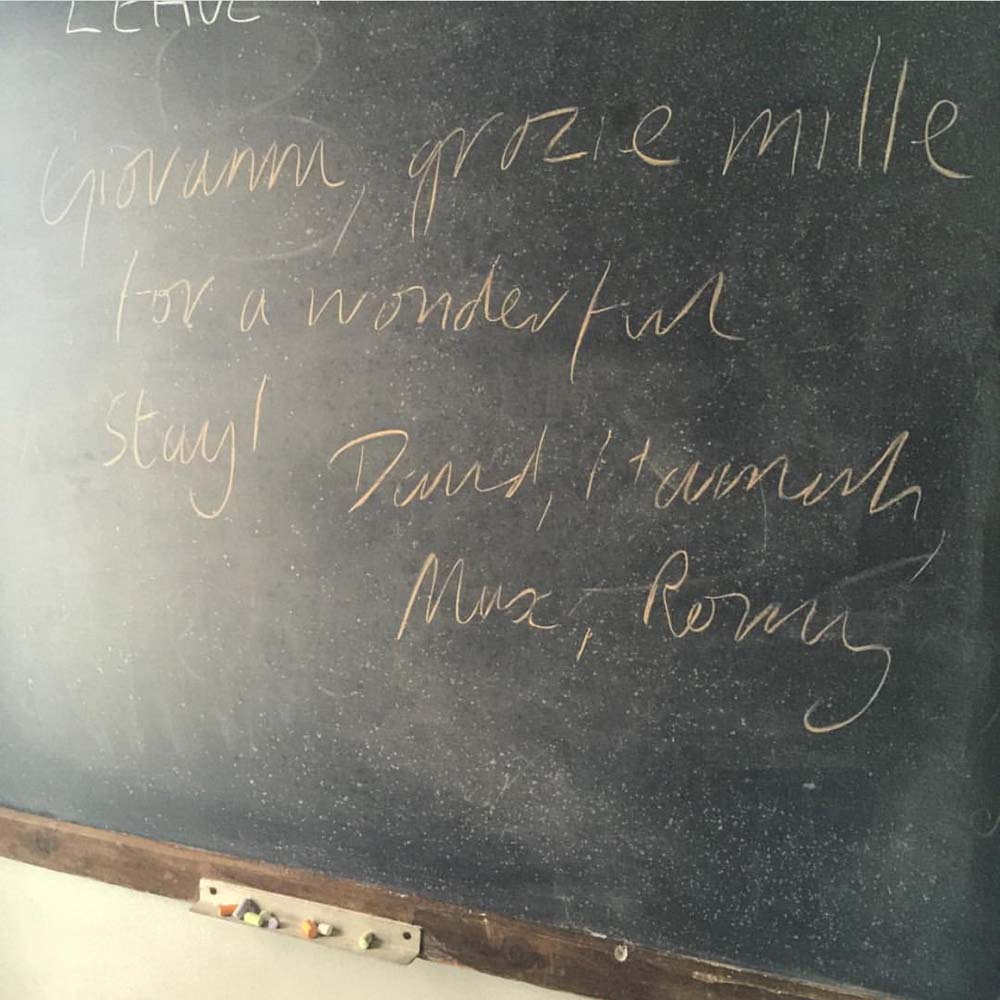 LEAVE
Giovanni, grazie mille
for a wonderful
stay!
David, Hannah,
Max, Romy